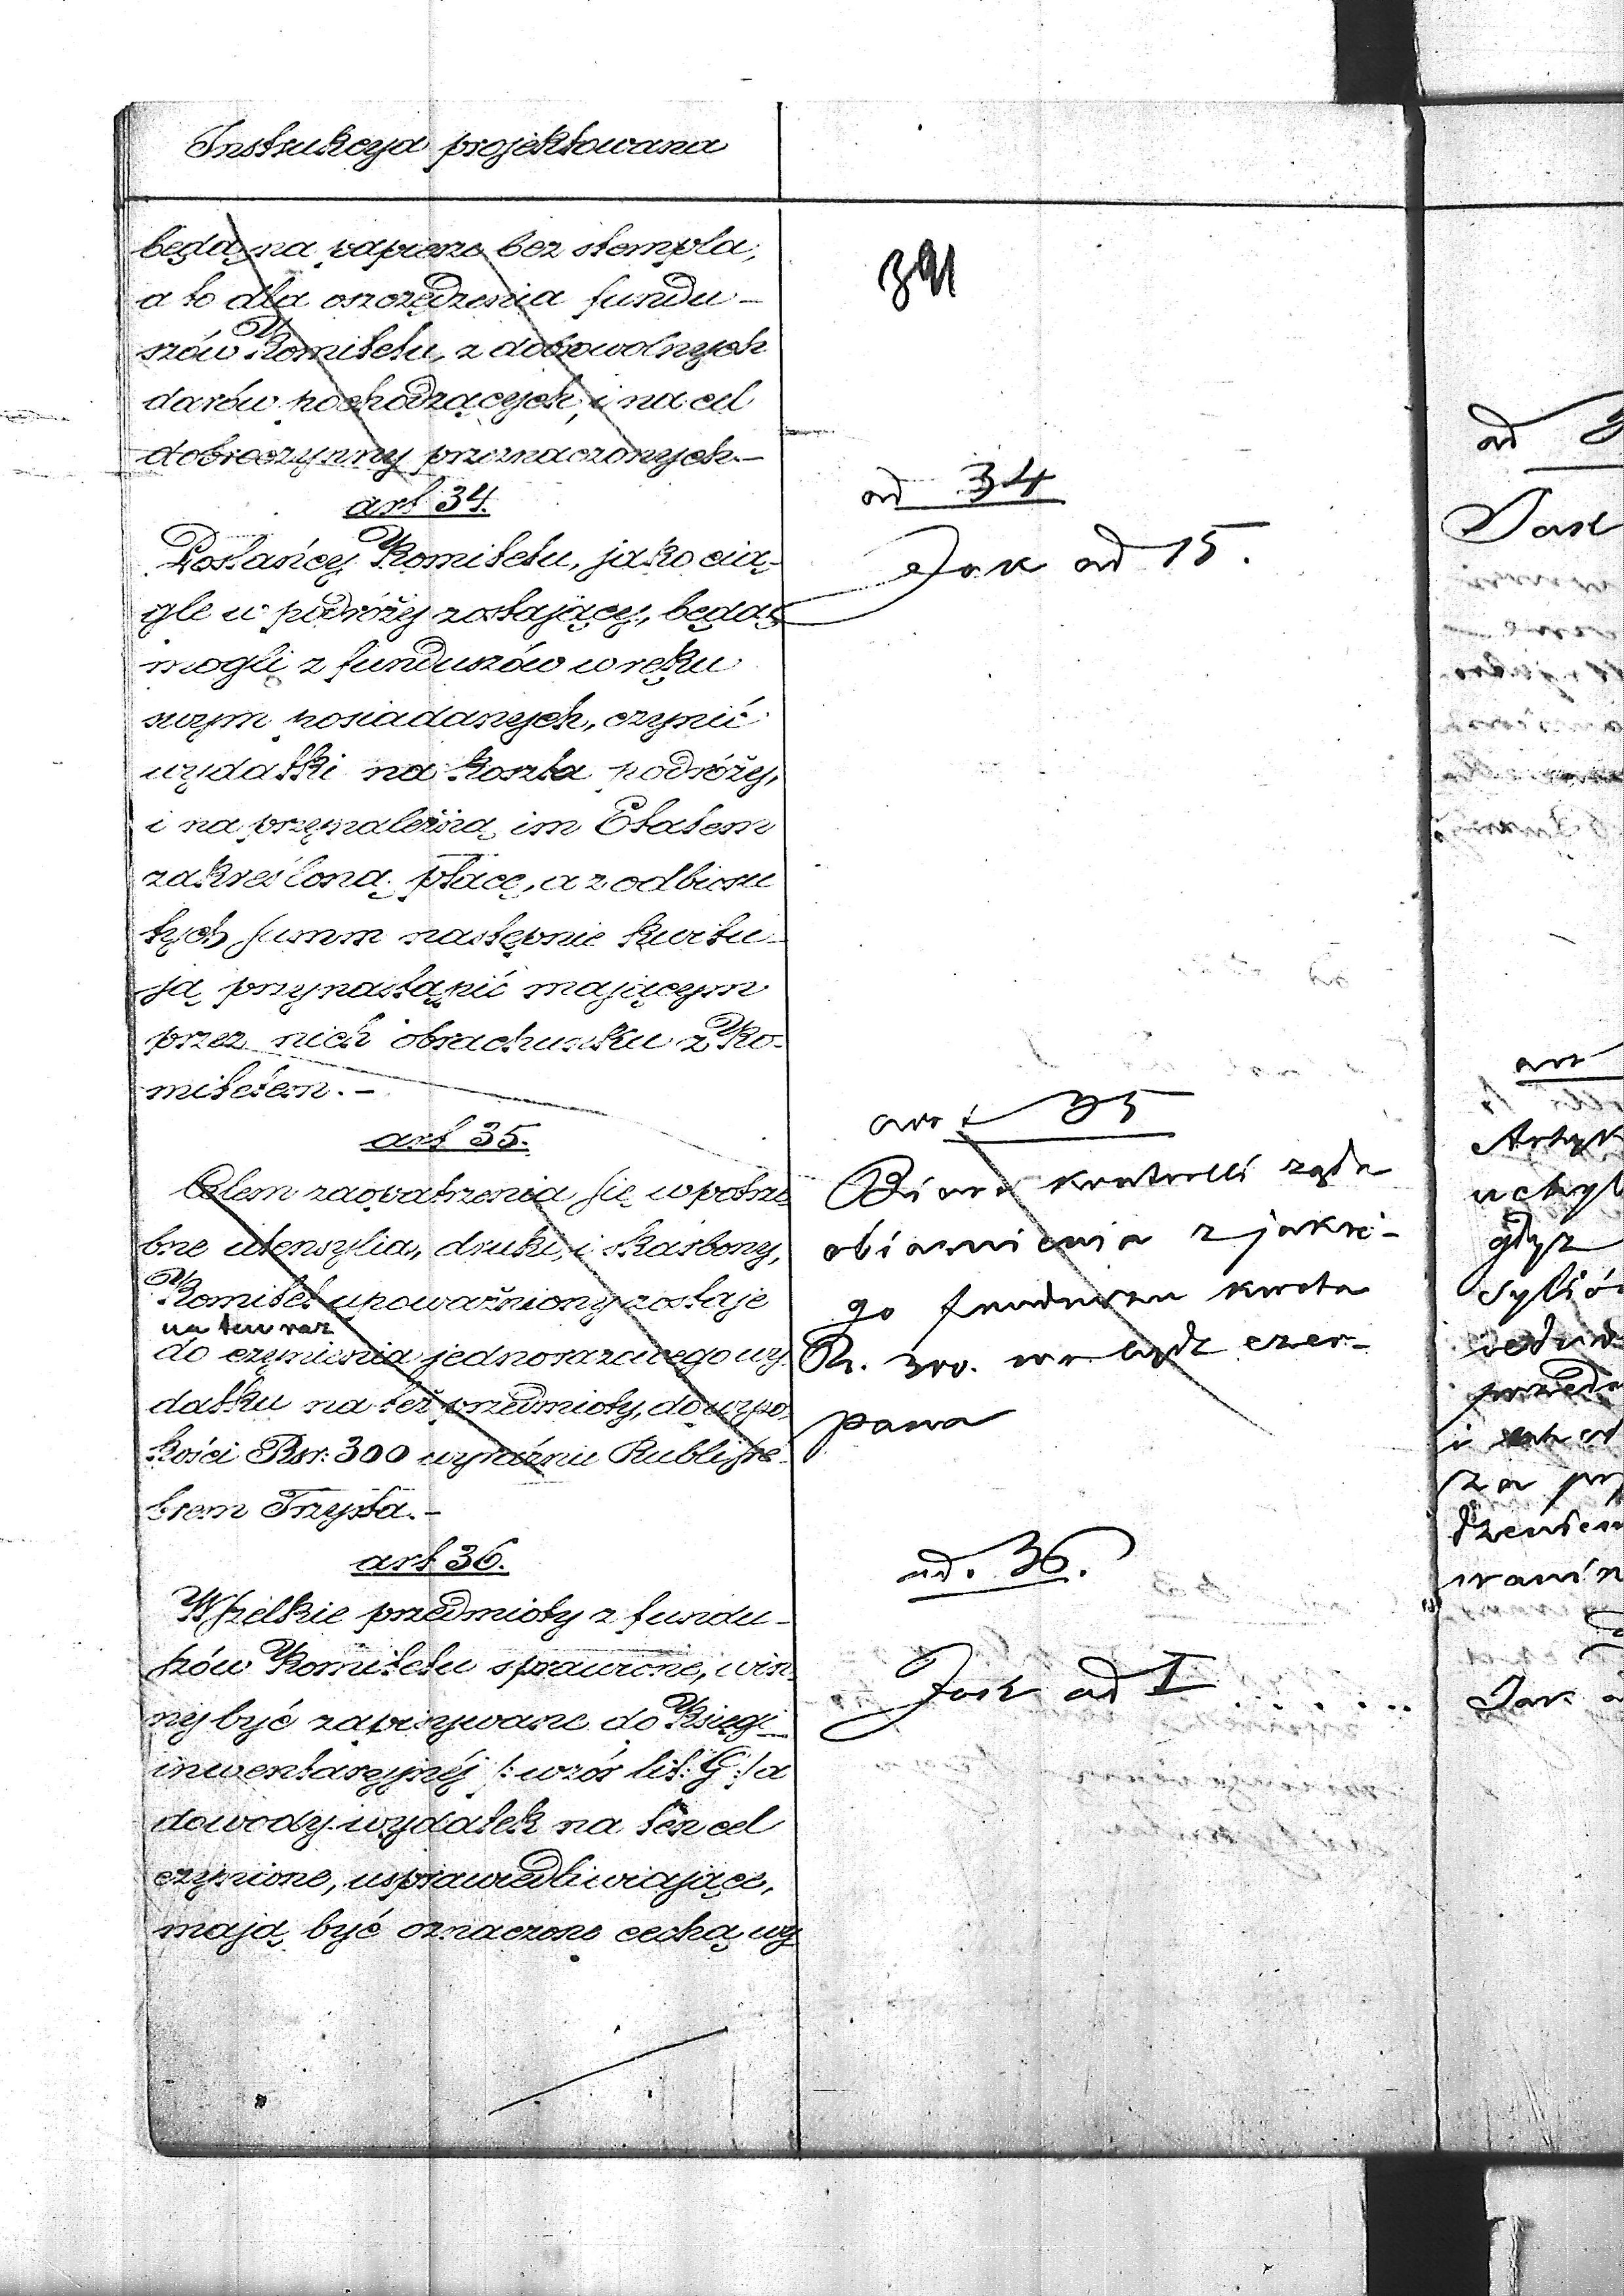 Instrukcya projektowana
będą na papierze bez stempla,
a to dla oszczędzenia fundu-
szów Komitetu, z dobrowolnych
darów pochodzących, i na cel
dobroczynny przeznaczonych.-
art 34.
Posłańcy Komitetu, jako cią-
gle w podróży zostający, będą
mogli z funduszów w ręku
swym posiadanych, czynić
wydatki na koszta podróży,
i na przynależną im Etatem
zakreśloną płacę, a z odbioru
tych summ następnie kwitu-
ją przy nastąpić mającym
przez nich obrachunku z Ko-
mitetem.-
art 35.
Celem zaopatrzenia się w potrze
bne utensylia, druki, i skarbony,
Komitet upoważniony zostaje
na ten raz
do czynienia jednorazowego wy
datku na też przedmioty, do wyso
kości Rsr: 300 wyraźnie Rubli sre
brem Trzysta.-
art 36.
Wszelkie przedmioty z fundu-
szów Komitetu sprawione, win
ny być zapisywane do Księgi
inwentaryjnéj /: wzór lit: G :/ a
dowody wydatek na ten cel
czynione, usprawiedliwiające,
mają być oznaczone cechą wy
391
ad 34
Jak ad 15.
art 35
Biuro kontrolli żąda
objaśnienia z jakie-
go funduszu kwota
R. 300. ma bydź czer-
pana
ad. 36.
Jak ad I
ad
Jak
art
Artyk
uchyl
gdyż
sylió
przed
i
sza
dzeniem
Jak a